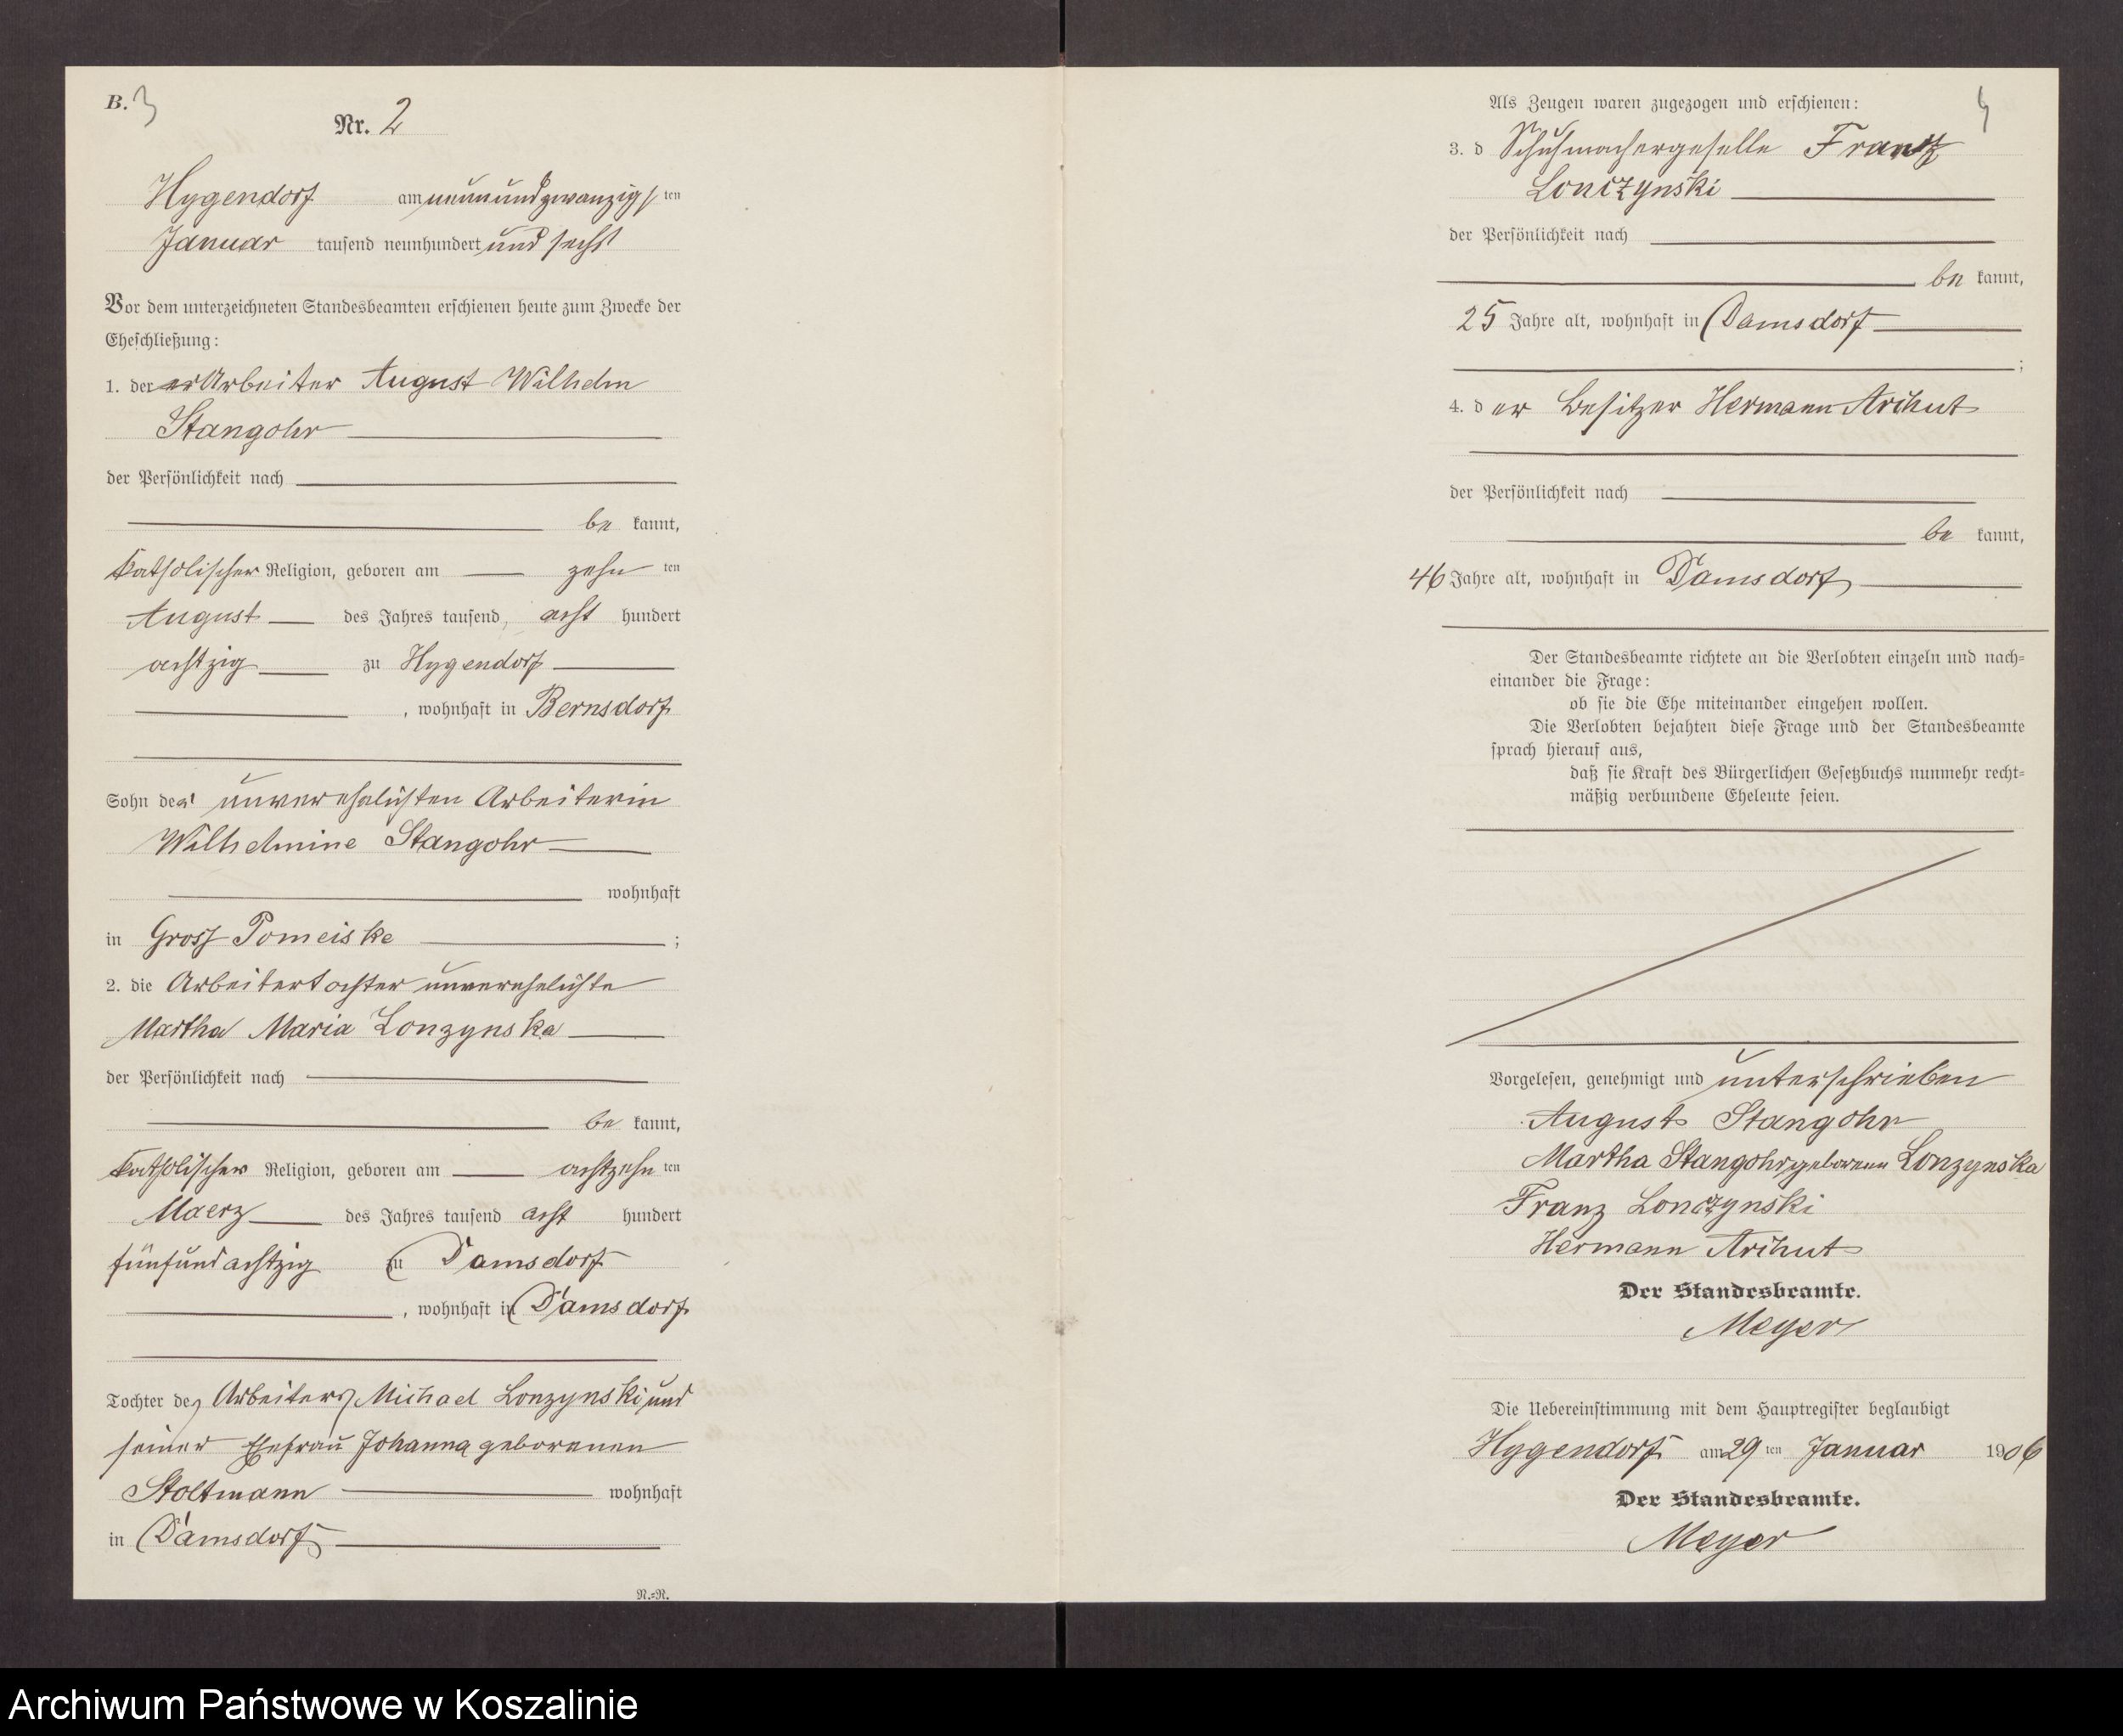 B. 3
Nr. 2
Hygendorf am neunundzwanzigsten
Januar tausend neunhundert und sechs
Vor dem unterzeichneten Standesbeamten erschienen heute zum Zwecke der
Eheschließung:
1. der Arbeiter August Wilhelm
Stangohr
der Persönlichkeit nach
be kannt,
katholischer Religion, geboren am zehn ten
August des Jahres tausend acht hundert
achtzig zu Hygendorf
, wohnhaft in Bernsdorf
Sohn der unverehelichten Arbeiterin
Wilhelmine Stangohr
wohnhaft
in Gross Pomeiske ;
2. die Arbeitertochter unverehelichte
Martha Maria Lonzynska
der Persönlichkeit nach
be kannt,
katholischer Religion, geboren am achtzehn ten
Maerz des Jahres tausend acht hundert
fünfundachtzig zu Damsdorf
, wohnhaft in Damsdorf
Tochter des Arbeiters Michael Lonzynski und
seiner Ehefrau Johanna geborenen
Stoltmann wohnhaft
in Damsdorf
N.=R.
4
Als Zeugen waren zugezogen und erschienen:
3. d Schuhmachergeselle Franz
Lonczynski
der Persönlichkeit nach
be kannt,
25 Jahre alt, wohnhaft in Damsdorf
;
4. d er Besitzer Hermann Arihut
der Persönlichkeit nach
be kannt,
46 Jahre alt, wohnhaft in Damsdorf
Der Standesbeamte richtete an die Verlobten einzeln und nach=
einander die Frage:
ob sie die Ehe miteinander eingehen wollen.
Die Verlobten bejahten diese Frage und der Standesbeamte
sprach hierauf aus,
daß sie Kraft des Bürgerlichen Gesetzbuchs nunmehr recht=
mäßig verbundene Eheleute seien.
Vorgelesen, genehmigt und unterschrieben
August Stangohr
Martha Stangohr geborene Lonzynska
Franz Lonczynski
Hermann Arihut
Der Standesbeamte.
Meyer
Die Uebereinstimmung mit dem Hauptregister beglaubigt
Hygendorf am 29 ten Januar 1906
Der Standesbeamte.
Meyer
Archiwum Państwowe w Koszalinie